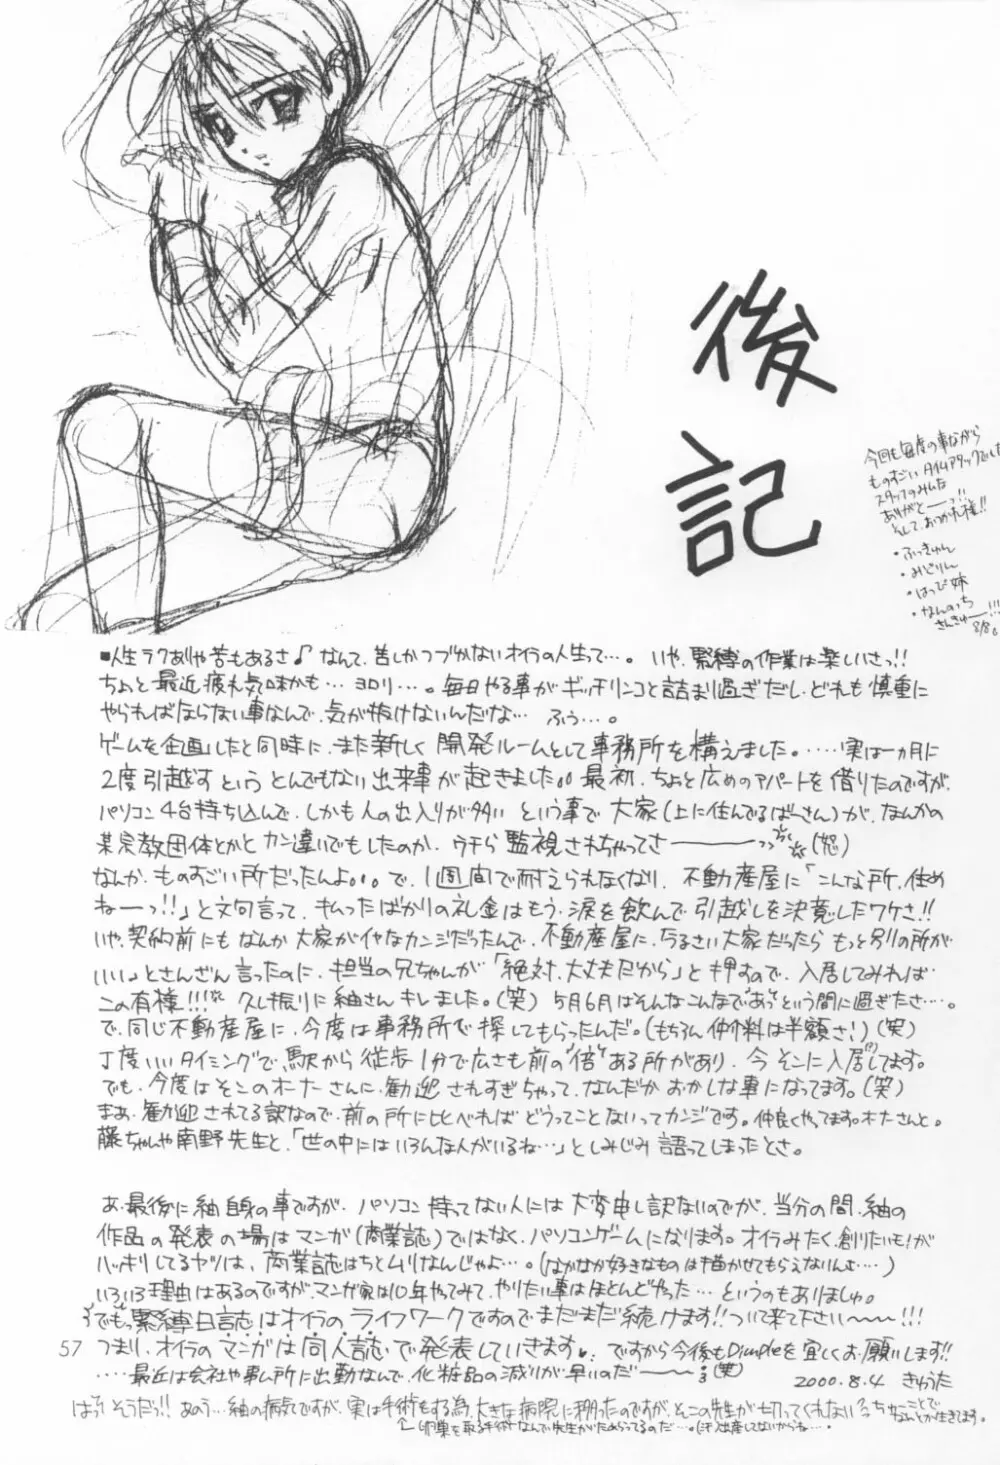 後記
今回も毎度の事ながら
ものすごいタイムアタックでした
スタッフのみんな
ありがとーっ!!
そして、おつかれ様!!
・ふっきゅん
・みどりん
・はっぴ姉
・なんのっち
さんきゅー!!!
■人生ラクありゃ苦もあるさ♪なんて、苦しかつづかないオイラの人生って…。いや、緊縛の作業は楽しいさっ!!
ちょっと最近疲れ気味かも…ヨロリ…。毎日やる事がギッチリンコと詰まり過ぎだし、どれも慎重に
やらればならない事なんで、気が抜けないんだな… ふぅ…。
ゲームを企画したと同時に、また新しく開発ルームとして事務所を構えました。……実は一ヵ月に
2度引越すというとんでもない出来事が起きました。。最初、ちょっと広めのアパートを借りたのですが、
パソコン4台持ち込んで、しかも人の出入りが多いという事で大家(上に住んでるばーさん)が、なんかの
某宗教団体とかとカン違いでもしたのか、ウチら監視されちゃってさーーっっ(怒)
なんか、ものすごい所だったんよ。。。で、1週間で耐えられなくなり、不動産屋に「こんな所、住め
ねーっ!!」と文句言って、払ったばかりの礼金はもう、涙を飲んで引越しを決意したワケさ!!
いや、契約前にもなんか大家がイヤなカンジだったんで、不動産屋に、うるさい大家だったらもっと別の所が
いい。とさんざん言ったのに、担当の兄ちゃんが「絶対、大丈夫だから」と押すので、入居してみれば
この有様!!! 久し振りに紬さんキレました。(笑) 5月6月はそんなこんなであっという間に過ぎたさ…。
で、同じ不動産屋に、今度は事務所で探してもらったんだ。(もちろん仲介料は半額さ!)(笑)
丁度いいタイミングで、駅から徒歩1分で広さも前の“倍”ある所があり、今そこに入居してます。
でも、今度はそこのオーナーさんに、歓迎されすぎちゃって、なんだかおかしな事になってます。(笑)
まぁ、歓迎されてる訳なので、前の所に比べればどうってことないってカンジです。仲良くやってます。オーナーさんと。
藤ちゃんや南野先生と、「世の中にはいろんな人がいるね…」としみじみ語ってしまったとさ。
あ、最後に紬自身の事ですが、パソコン持ってない人には大変申し訳ないのですが、当分の間、紬の
作品の発表の場はマンガ(商業誌)ではなく、パソコンゲームになります。オイラみたく、創りたいもんが
ハッキリしてるヤツは、商業誌はちとムリなんじゃよ…。(なかなか好きなものは描かせてもらえないんよ…)
いろいろ理由はあるのですが、マンガ家は10年やってみて、やりたい事はほとんどやった…というのもありましゅ。
でもっ緊縛日誌はオイラのライフワークですのでまだまだ続けます!!ついて来て下さい〜〜!!!
57 つまり、オイラのマンガは同人誌で発表していきます♥ ですから今後もDimpleを宜しくお願いします!!
……最近は会社や事ム所に出勤なんで、化粧品の減りが早いのだー(笑) 2000.8.4 きゅうた
はっ!そうだっ!!あのう…紬の病気ですが、実は手術もする為、大きな病院に移ったのですが、そこの先生が切ってくれない
└卵巣を取る手術なんで先生がためらってるのだ…。